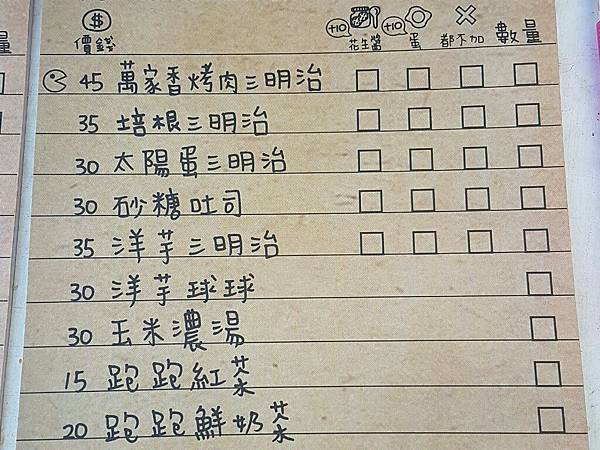 $ +10 +10
價錢 花生醬 蛋 都不加 數量
量
45 萬家香烤肉三明治
35 培根三明治
30 太陽蛋三明治
30 砂糖吐司
35 洋芋三明治
30 洋芋球球
30 玉米濃湯
15 跑跑紅茶
20 跑跑鮮奶茶